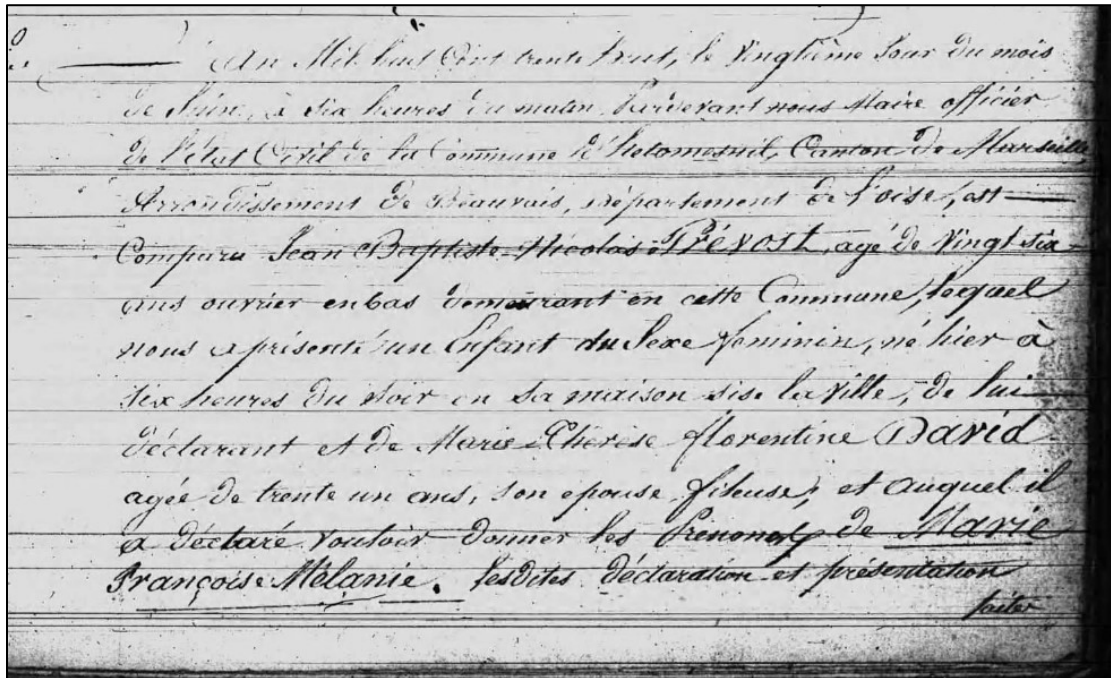 An Mil huit Cent trente huit, le Vingtième Jour du mois
de Juin, à six heures du matin Pardevant nous Maire officier
de l'état Civil de la Commune d'hetomesnil, Canton de Marseille
Arrondissement de Beauvais, département de l'oise, est
Comparu Jean Baptiste Nicolas Prévost, agé de Vingt six
ans ouvrier en bas demeurant en cette Commune, lequel
nous a présenté un Enfant du Sexe feminin, né hier à
six heures du soir en sa maison sise la Ville, de lui
déclarant et de Marie Thérèse florentine David
agée de trente un ans, son epouse fileuse, et auquel il
a déclaré vouloir donner les Prenoms de Marie
Françoise Mélanie. Lesdites déclaration et présentation
faites